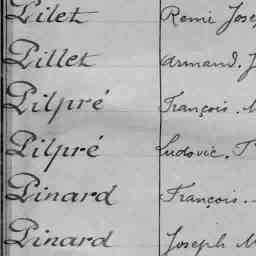 Pilet Remi Jose
Pillet Armand. J
Pilpré François. M
Pilpré Ludovic. T
Pinard François.
Pinard Joseph M